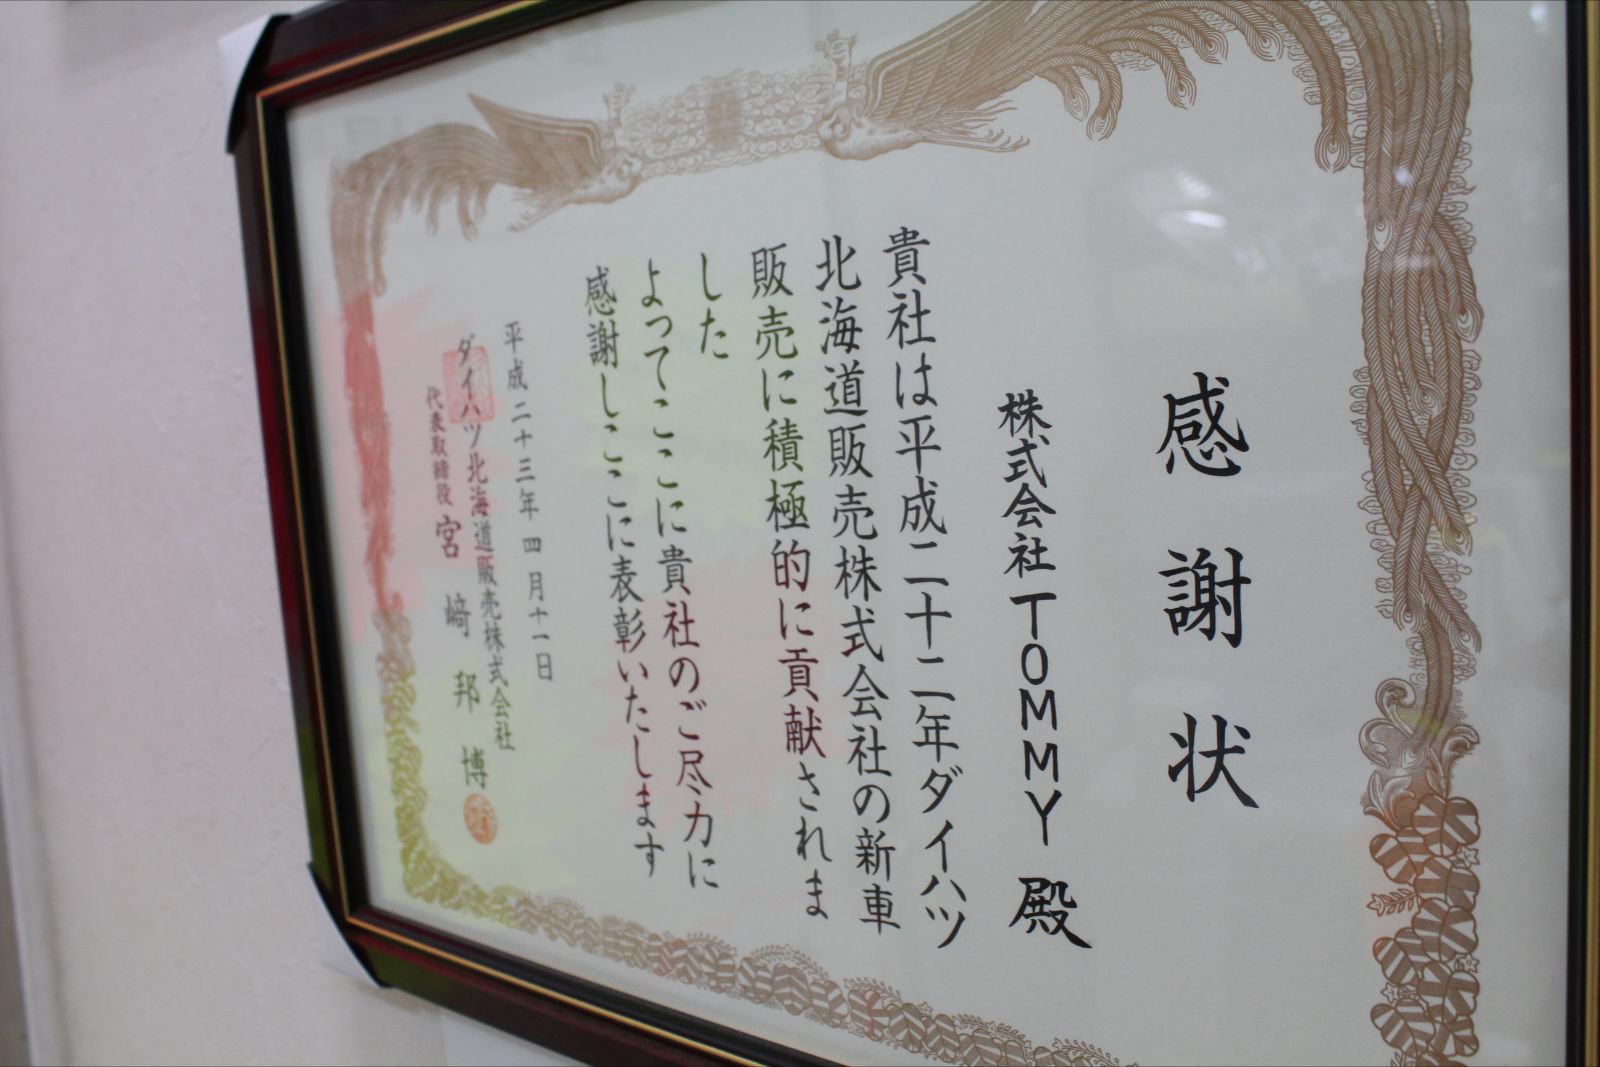 感謝状
株式会社TOMMY 殿
貴社は平成二十二年ダイハツ
北海道販売株式会社の新車
販売に積極的に貢献されま
した
よってここに貴社のご尽力に
感謝しここに表彰いたします
平成二十三年四月十一日
ダイハツ北海道販売株式会社
代表取締役 宮﨑邦博